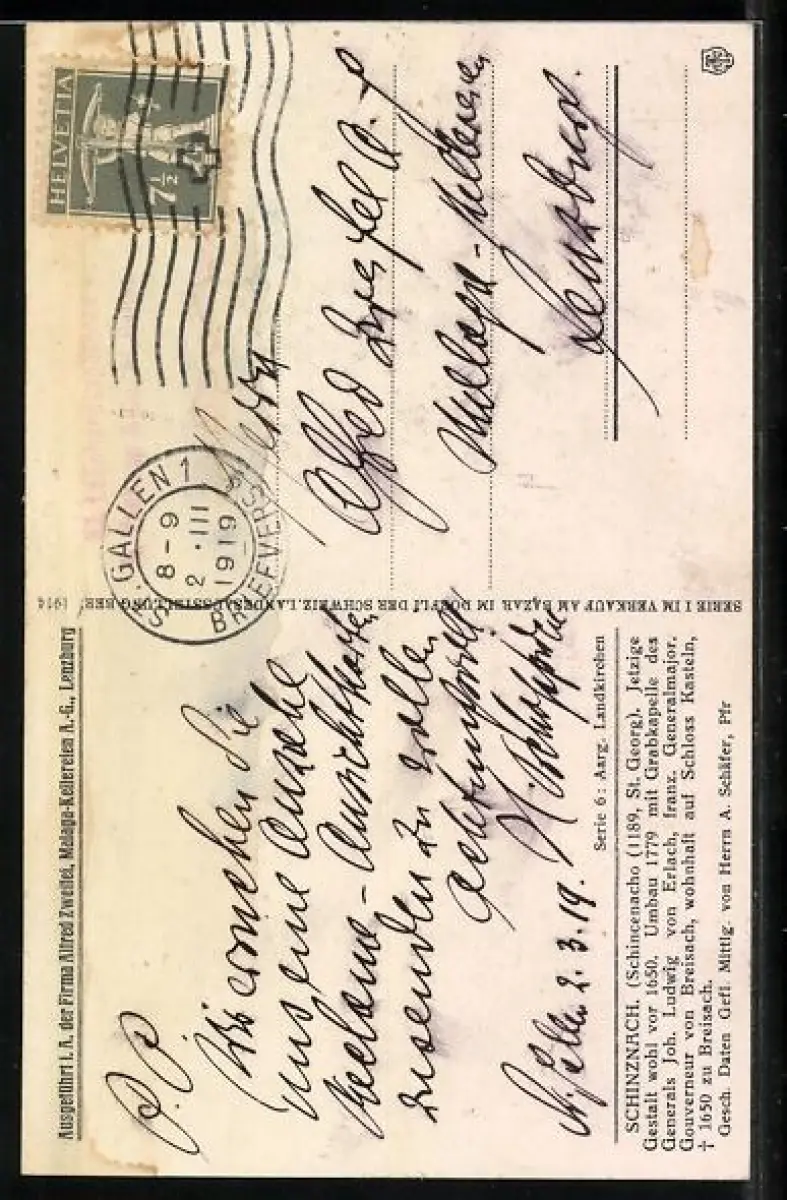 Ausgeführt i. A. der Firma Alfred Zweifel, Malaga-Kellereien A.-G., Lenzburg
P. P.
Wir ersuchen Sie
uns eine Anzahl
Reclame-Ansichtskarten
zusenden zu wollen
Achtungsvoll
St. Gallen 2.3.19.
Serie 6: Aarg. Landkirchen
SCHINZNACH. (Schincenacho (1189, St. Georg). Jetzige
Gestalt wohl vor 1650. Umbau 1779 mit Grabkapelle des
Generals Joh. Ludwig von Erlach, franz. Generalmajor.
Gouverneur von Breisach, wohnhaft auf Schloss Kasteln,
† 1650 zu Breisach.
Gesch. Daten Gefl. Mittlg. von Herrn A. Schäfer, Pfr
SERIE I IM VERKAUF AM BAZAR IM DÖRFLI DER SCHWEIZ. LANDESAUSSTELLUNG BERN 1914
HELVETIA
7½
ST. GALLEN 1
8-9
2.III
1919
BRIEFVERS
Herrn
Alfred Zweifel A. G.
Malaga-Kellereien
Lenzburg.